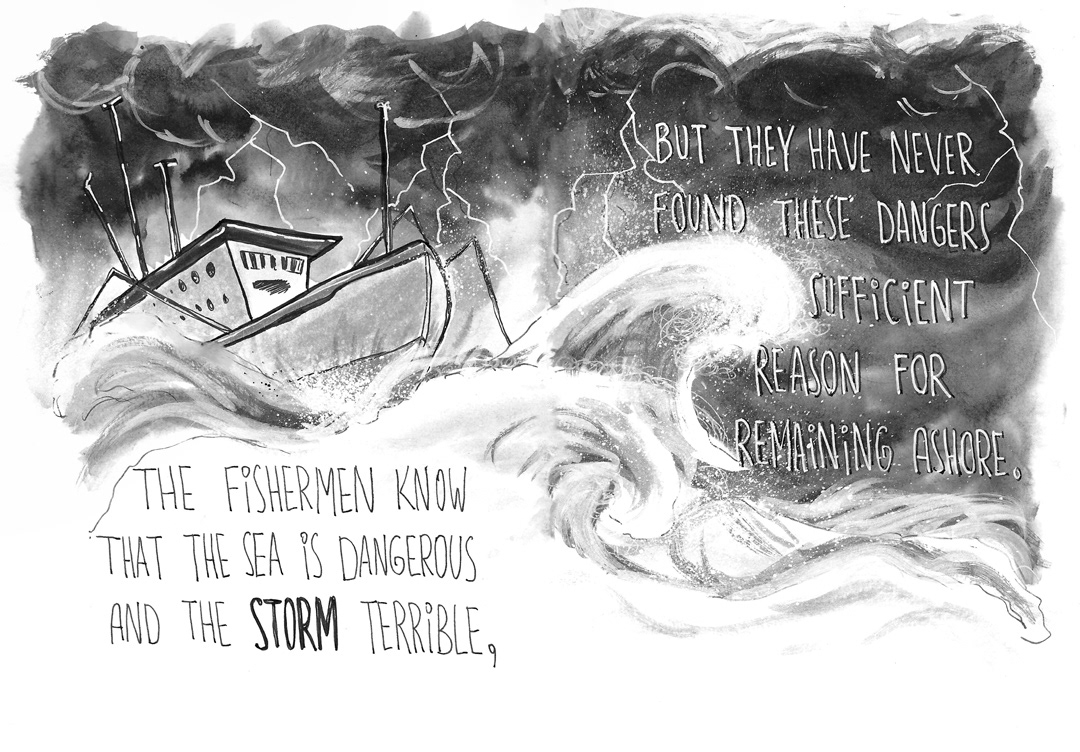 THE FiSHERMEN KNOW
THAT THE SEA iS DANGEROUS
AND THE STORM TERRiBLE,
BUT THEY HAVE NEVER
FOUND THESE DANGERS
SUFFiCiENT
REASON FOR
REMAiNiNG ASHORE.